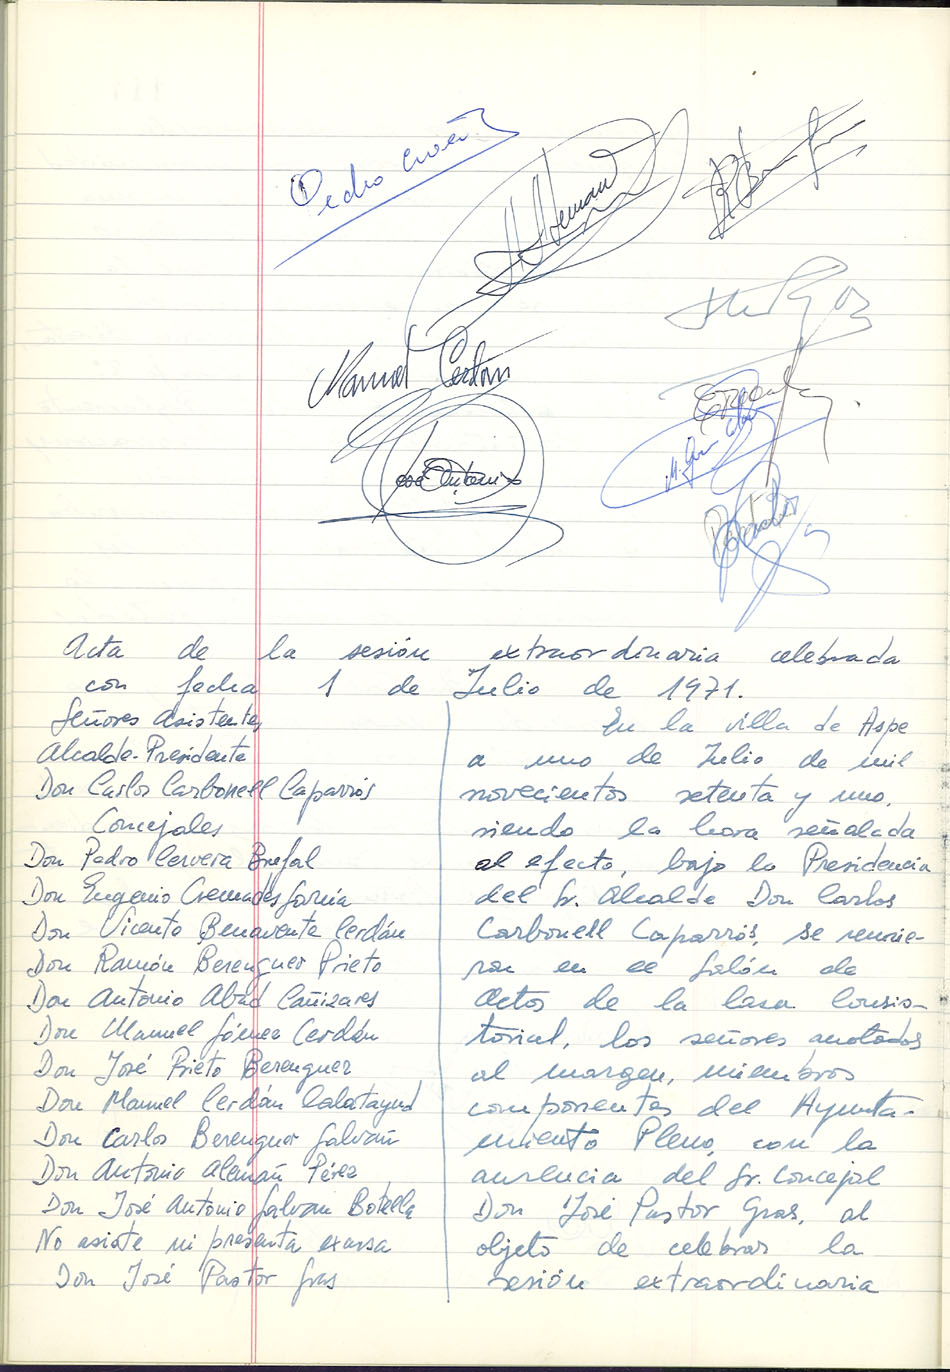 Pedro
Manuel Cerdán
José Antonio
Acta de la sesión extraordinaria celebrada
con fecha 1 de Julio de 1971.
Señores Asistentes
Alcalde-Presidente
Don Carlos Carbonell Caparrós
Concejales
Don Pedro Cervera Brefal
Don Eugenio Cremades García
Don Vicente Benavente Cerdán
Don Ramón Berenguer Prieto
Don Antonio Abad Cañizares
Don Manuel Gómez Cerdán
Don José Prieto Berenguer
Don Manuel Cerdán Calatayud
Don Carlos Berenguer Galvañ
Don Antonio Alemañ Pérez
Don José Antonio Galvañ Botella
No asiste ni presenta excusa
Don José Pastor Gras
En la villa de Aspe
a uno de Julio de mil
novecientos setenta y uno,
siendo la hora señalada
al efecto, bajo la Presidencia
del Sr. Alcalde Don Carlos
Carbonell Caparrós, se reunie-
ron en el Salón de
Actos de la Casa Consis-
torial, los señores anotados
al margen, miembros
componentes del Ayunta-
miento Pleno, con la
ausencia del Sr. Concejal
Don José Pastor Gras, al
objeto de celebrar la
sesión extraordinaria